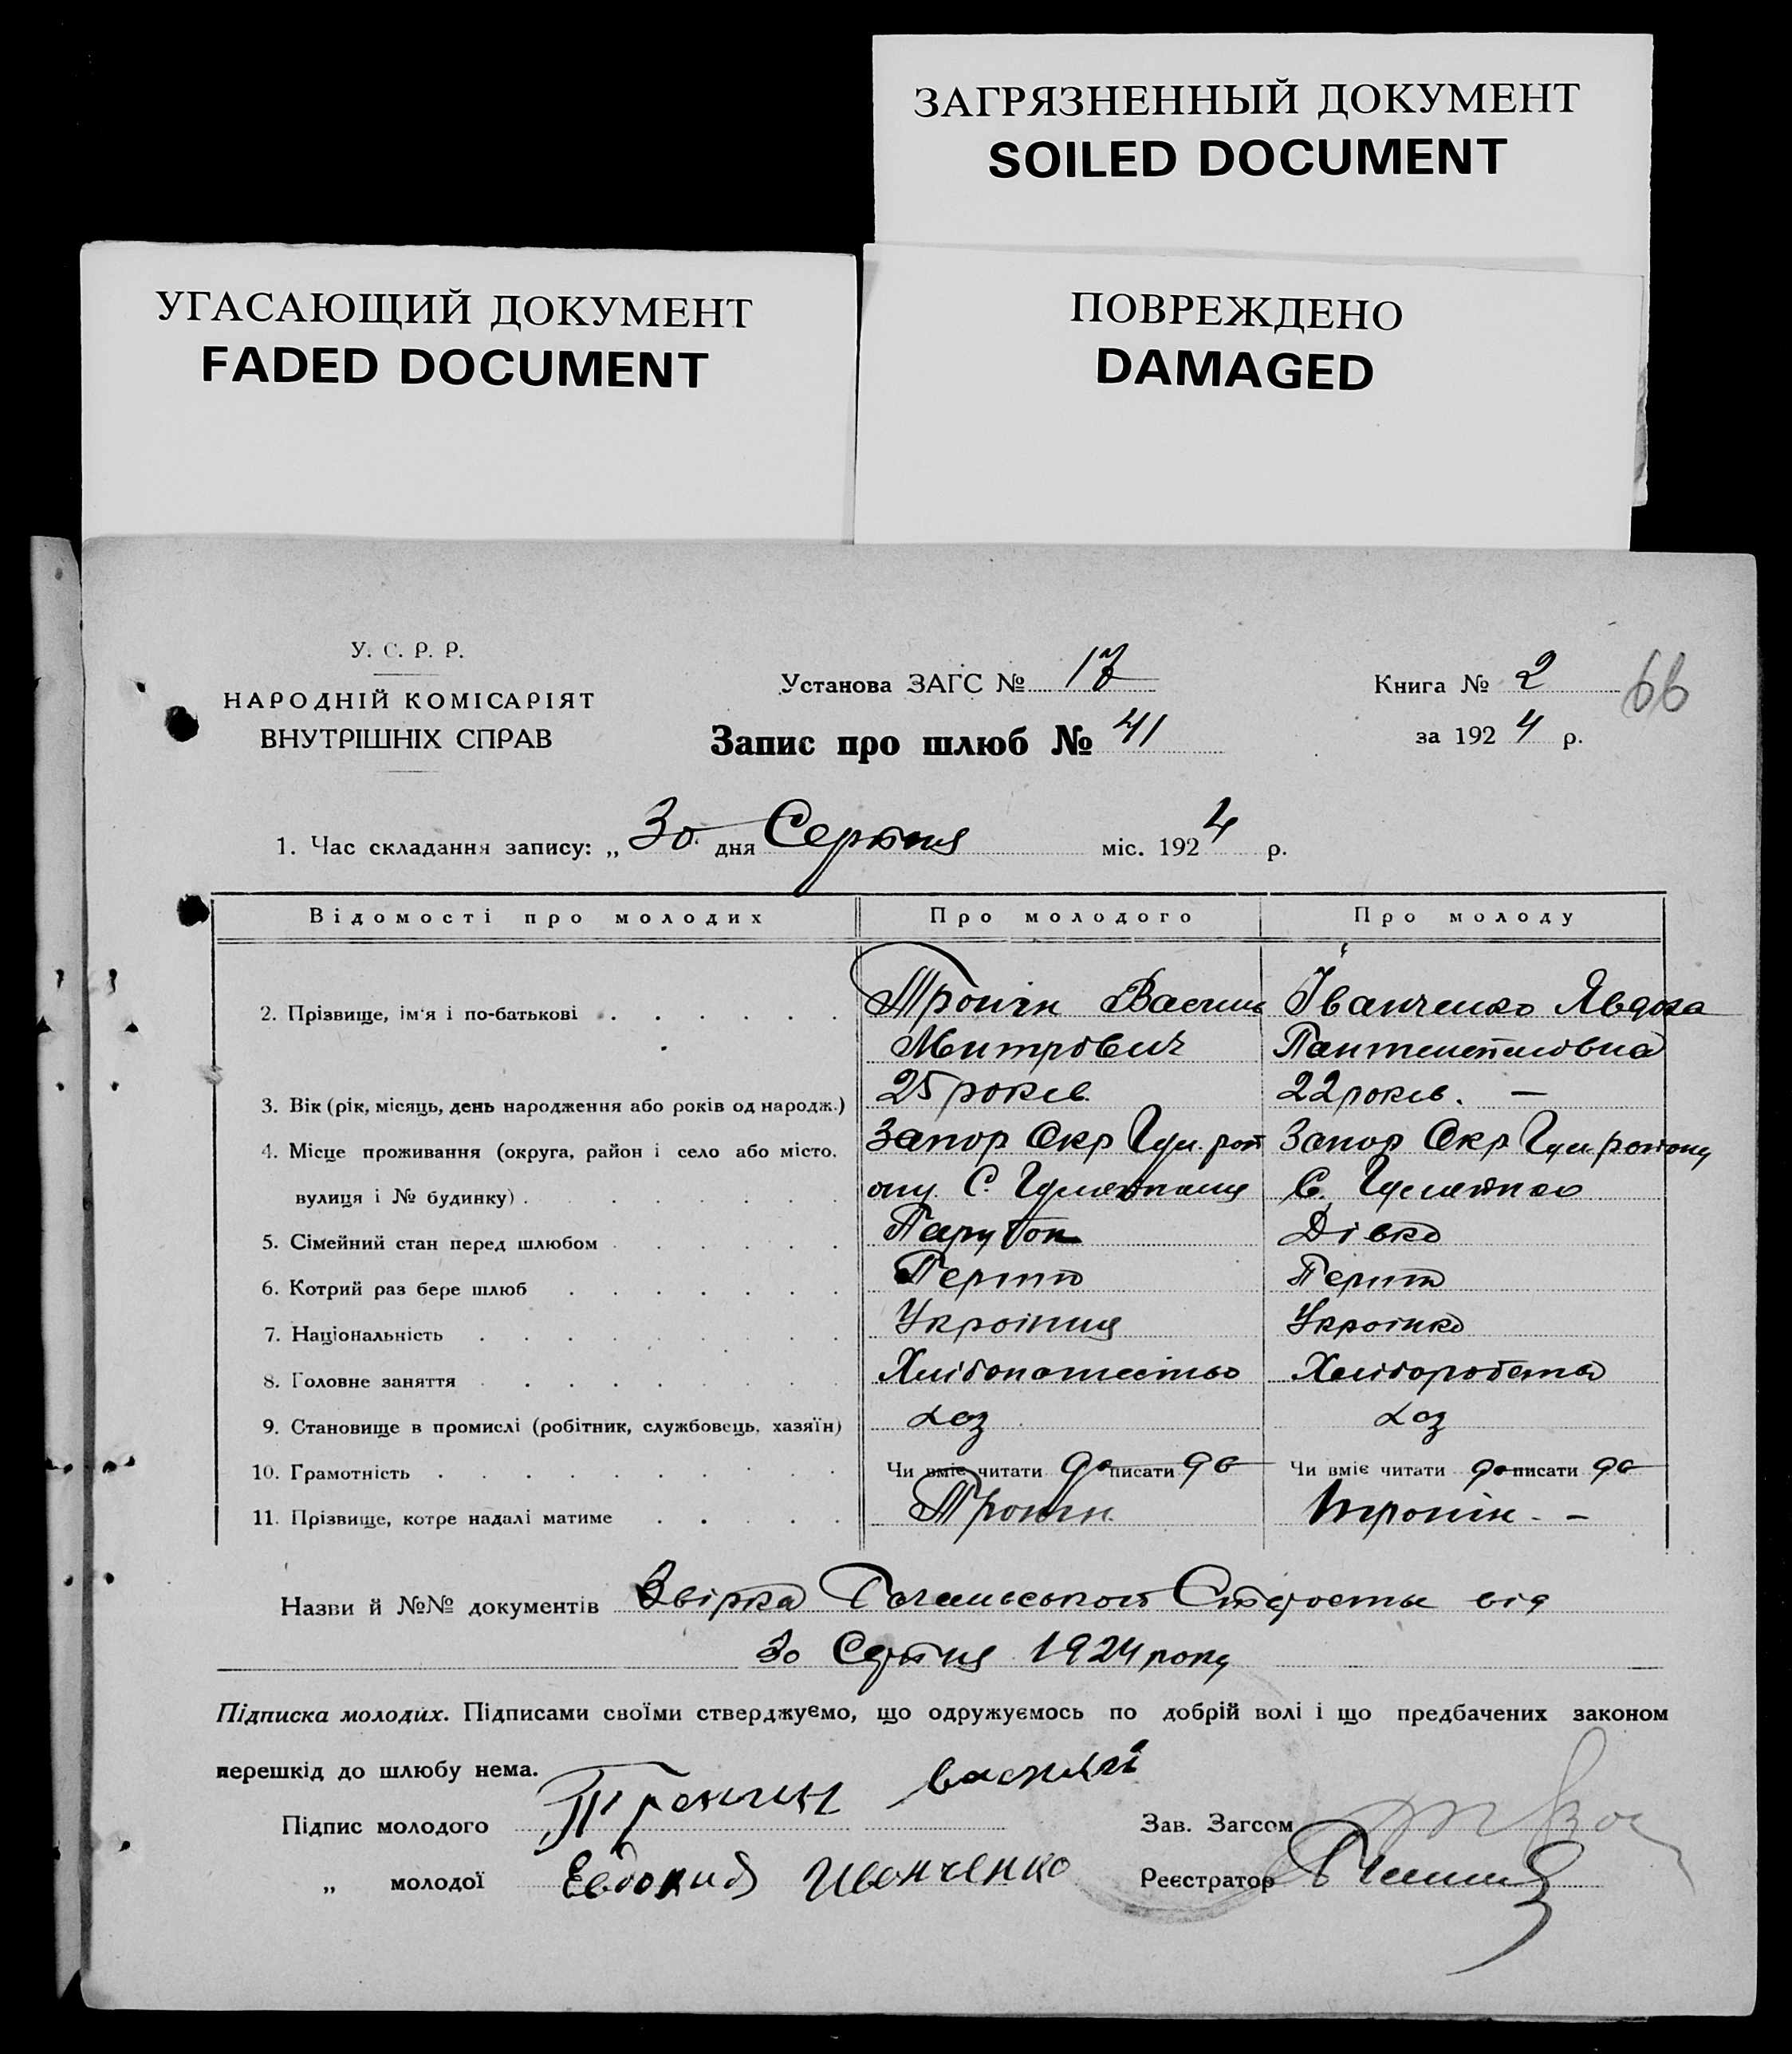 ЗАГРЯЗНЕННЫЙ ДОКУМЕНТ
SOILED DOCUMENT
УГАСАЮЩИЙ ДОКУМЕНТ
FADED DOCUMENT
ПОВРЕЖДЕНО
DAMAGED
У. С. Р. Р.
НАРОДНІЙ КОМІСАРІЯТ
ВНУТРІШНІХ СПРАВ
Установа ЗАГС № 17
Запис про шлюб № 41
Книга № 2 66
за 1924 р.
1. Час складання запису: „ 30 дня Серпня міс. 1924 р.
Відомості про молодих Про молодого Про молоду
2. Прізвище, ім'я і по-батькові Тронін Василь Іванченко Явдоха
Митрович Пантелепеловна
3. Вік (рік, місяць, день народження або років од народж.) 25 років 22 років. —
4. Місце проживання (округа, район і село або місто, Запор Окр Гул. рай Запор Окр Гул району
вулиця і № будинку) ону С. Гуляйполе С. Гуляйполе
5. Сімейний стан перед шлюбом Парубок Дівка
6. Котрий раз бере шлюб Перший Перший
7. Національність Українец Українка
8. Головне заняття Хлібопашество Хліборобота
9. Становище в промислі (робітник, службовець, хазяїн) хаз хаз
10. Грамотність Чи вміє читати да писати да Чи вміє читати да писати да
11. Прізвище, котре надалі матиме Тронін Тронін - -
Назви й №№ документів від
30 Серпня 1924 року
Підписка молодих. Підписами своїми стверджуємо, що одружуємось по добрій волі і що предбачених законом
перешкід до шлюбу нема.
Підпис молодого Тронин василий Зав. Загсом
„ молодої Евдокия Иванченко Реєстратор